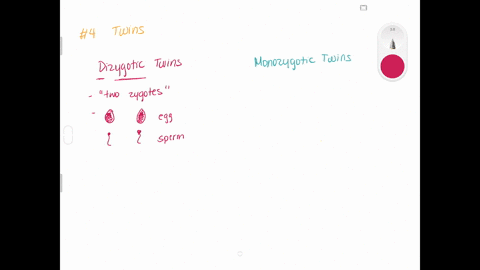 #4 Twins
Dizygotic Twins
Monozygotic Twins
- "two zygotes"
- egg
sperm